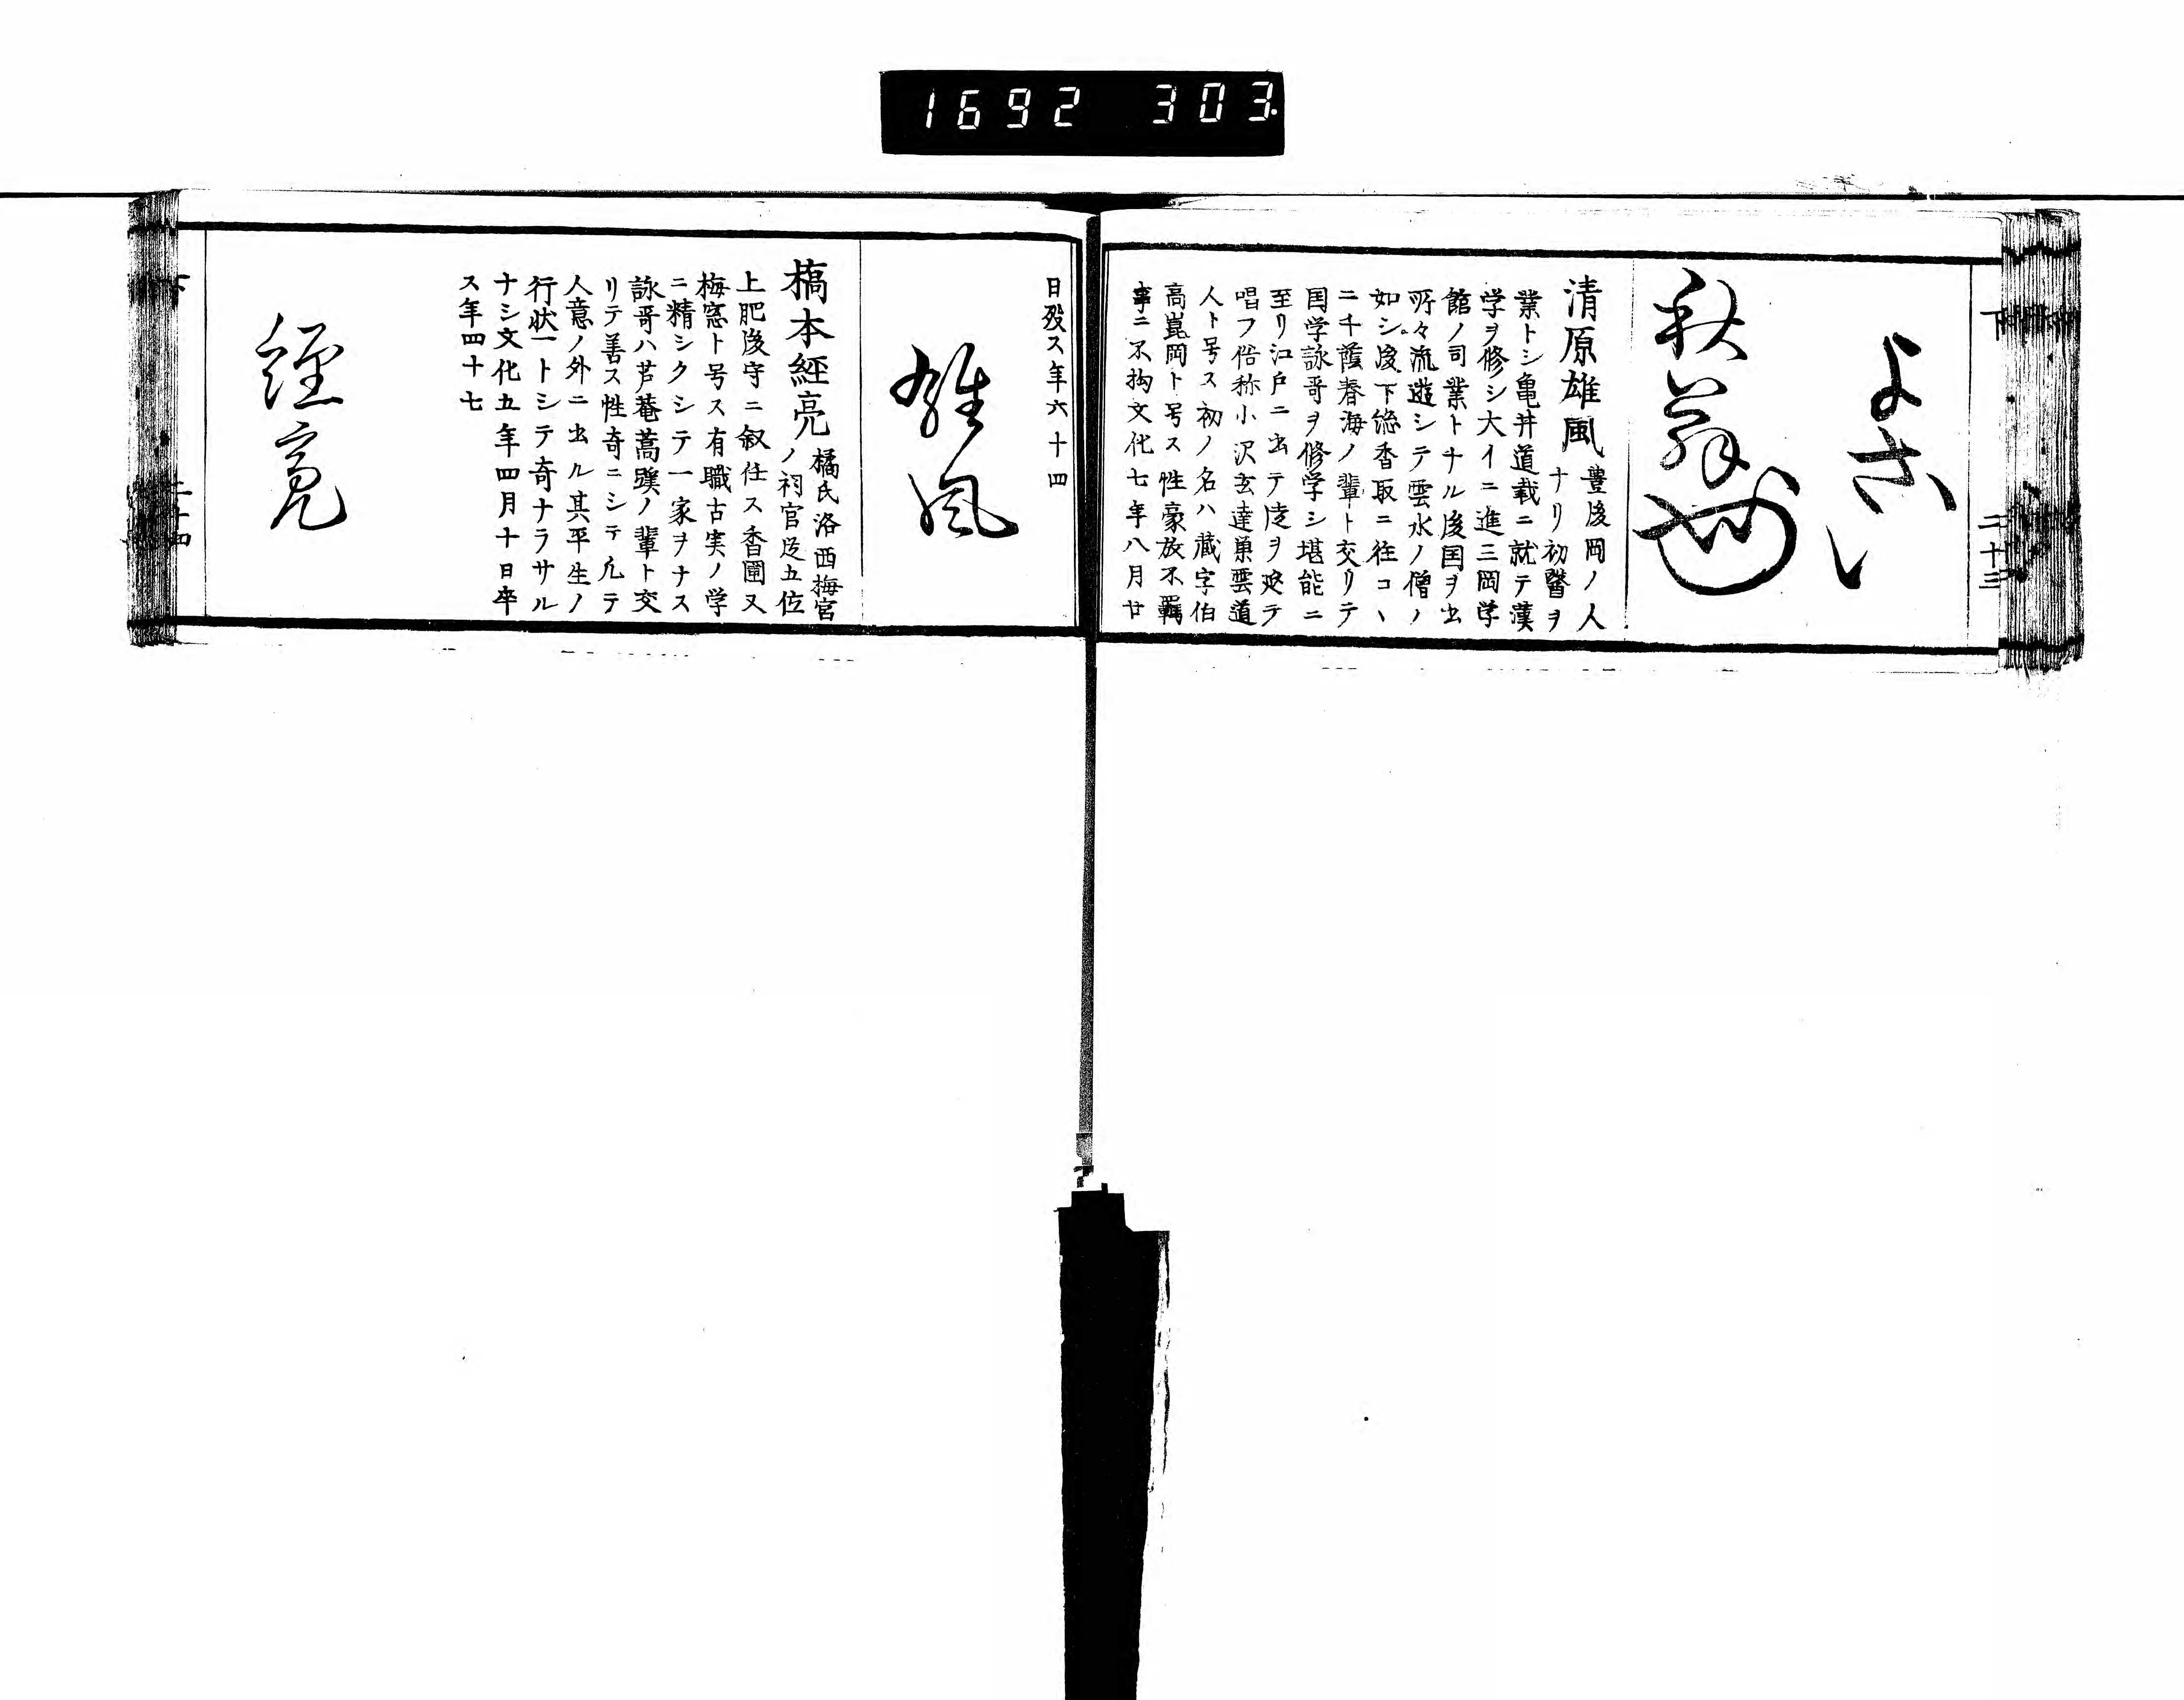 1692 303
下
二十三
よさい
秋翁
清原雄風
豊後岡ノ人
ナリ初醫ヲ
業トシ亀井道載ニ就テ漢
学ヲ修シ大イニ進三岡学
館ノ司業トナル後国ヲ出
所々流遊シテ雲水ノ僧ノ
如シ後下総香取ニ住コヽ
ニ千蔭春海ノ輩ト交リテ
国学詠哥ヲ修学シ堪能ニ
至リ江戸ニ出テ徒ヲ延テ
唱フ俗称小沢玄達巣雲道
人ト号ス初ノ名ハ蔵字伯
高崑岡ト号ス性豪放不羈
事ニ不拘文化七年八月廿
日歿ス年六十四
雄風
橋本経亮
橘氏洛西梅宮
ノ祠官従五位
上肥後守ニ叙任ス香圃又
梅窓ト号ス有職古実ノ学
ニ精シクシテ一家ヲナス
詠哥ハ芦菴蒿蹊ノ輩ト交
リテ善ス性奇ニシテ凡テ
人意ノ外ニ出ル其平生ノ
行状一トシテ奇ナラサル
ナシ文化五年四月十日卒
ス年四十七
經亮
下
二十四